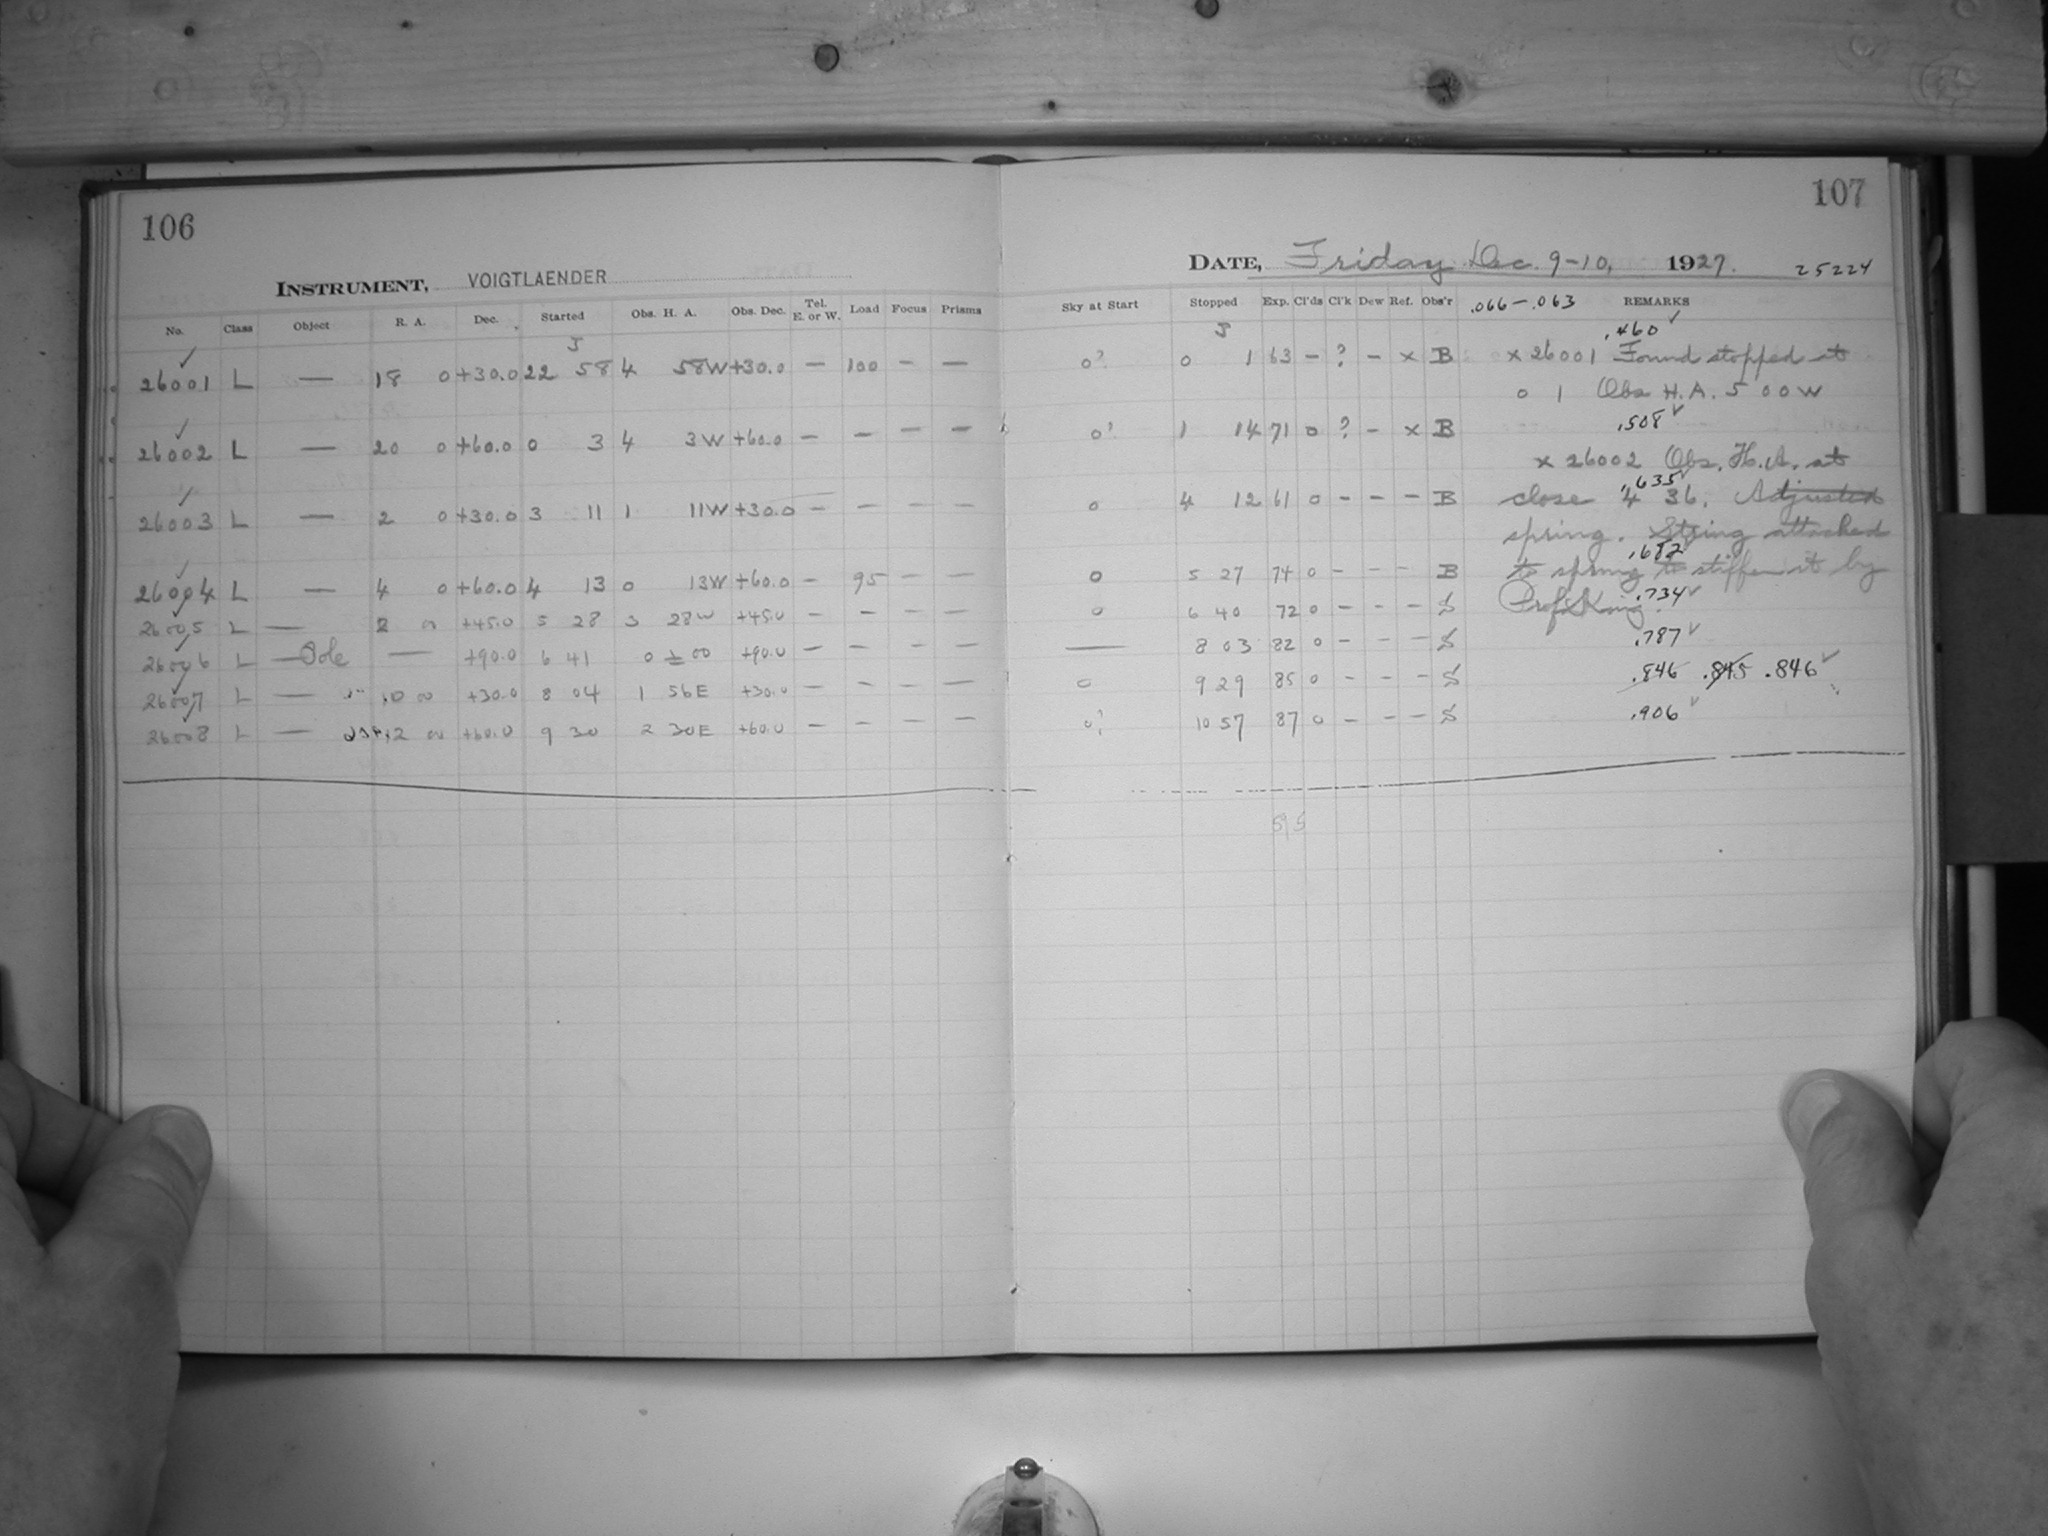 106
INSTRUMENT, VOIGTLAENDER
No. Class Object R. A. Dec. Started Obs. H. A. Obs. Dec. Tel. E. or W. Load Focus Prisms
26001 L — 18 0 +30.0 22 58 4 58W +30.0 — 100 — —
26002 L — 20 0 +60.0 0 3 4 3W +60.0 — — — —
26003 L — 2 0 +30.0 3 11 1 11W +30.0 — — — —
26004 L — 4 0 +60.0 4 13 0 13W +60.0 — 95 — —
26005 L — 2 00 +45.0 5 28 3 28W +45.0 — — — —
26006 L — Pole — +90.0 6 41 0 ± 00 +90.0 — — — —
26007 L — 10 00 +30.0 8 04 1 56E +30.0 — — — —
26008 L — 12 00 +60.0 9 30 2 30E +60.0 — — — —
107
DATE, Friday Dec. 9-10, 1927. 25224
Sky at Start Stopped Exp. Cl'ds Cl'k Dew Ref. Obs'r .066 — .063 REMARKS
.460 ✓
0? 0 1 63 — ? — x B x 26001 Found stopped at
0 1 Obs H.A. 5 00W
0? 1 14 71 0 ? — x B .508 ✓
x 26002 Obs. H.A. at
.635 ✓
0 4 12 61 0 — — — B close 4 36. Adjusted
spring. String attached
.682
0 5 27 74 0 — — — B to spring to stiffen it by
0 6 40 72 0 — — — S Prof. King. .734 ✓
— 8 03 82 0 — — — S .787 ✓
0 9 29 85 0 — — — S .846 .845 .846 ✓
0? 10 57 87 0 — — — S .906 ✓
595